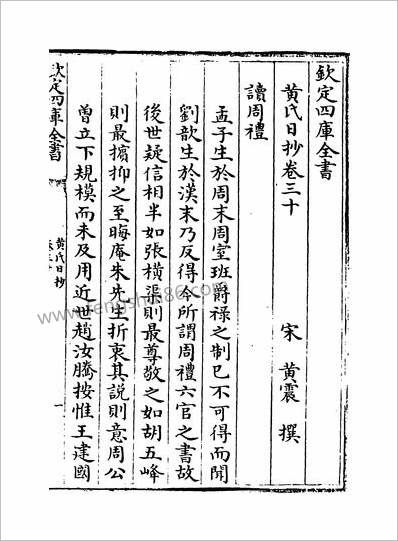 欽定四庫全書
黃氏日抄卷三十
宋 黃震 撰
讀周禮
孟子生於周末周室班爵祿之制已不可得而聞
劉歆生於漢末乃反得今所謂周禮六官之書故
後世疑信相半如張橫渠則最尊敬之如胡五峰
則最擯抑之至晦庵朱先生折衷其說則意周公
曾立下規模而未及用近世趙汝騰按惟王建國
欽定四庫全書
黃氏日抄
卷三十
一